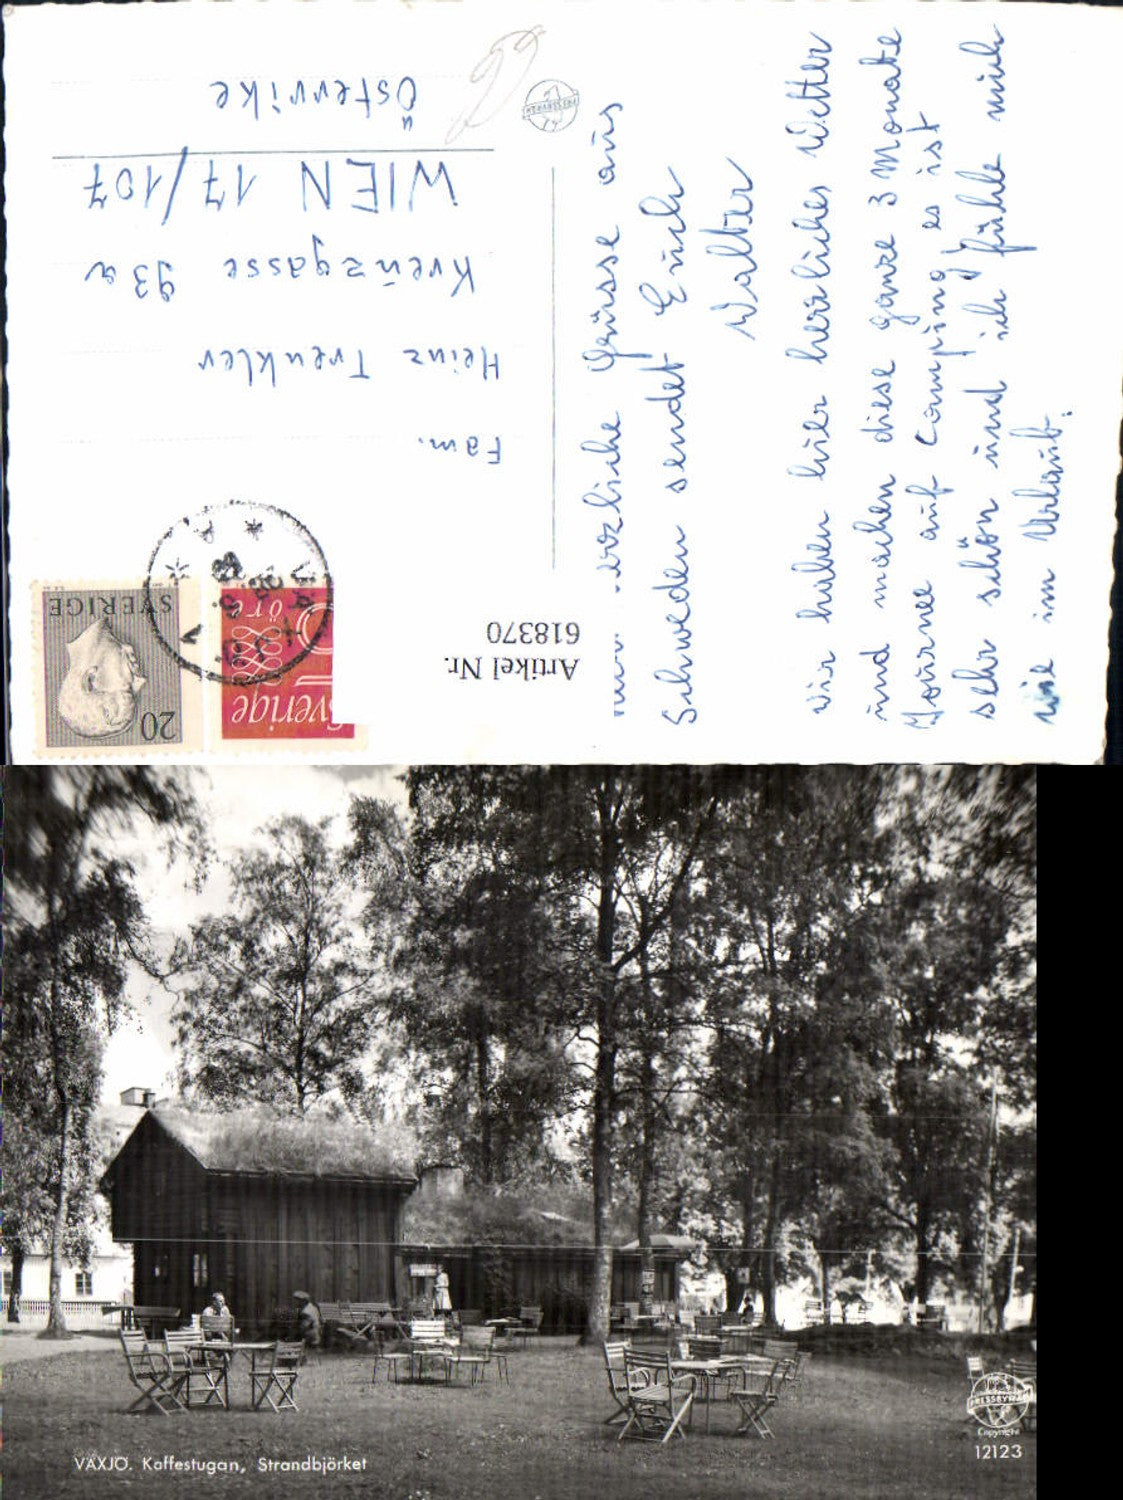 Herzliche Grüsse aus
Schweden sendet Euch
Walter
Wir haben hier herrliches Wetter
und machen diese ganze 3 Monate
Tournee auf Camping, es ist
sehr schön und ich fühle mich
wie im Urlaub.
Fam.
Heinz Trenkler
Kreuzgasse 93a
WIEN 17/107
Österrike
PRESSBYRÅN
Artikel Nr.
618370
20
SVERIGE
Sverige
öre
VÄXJÖ. Kaffestugan, Strandbjörket
PRESSBYRÅN
Copyright
12123